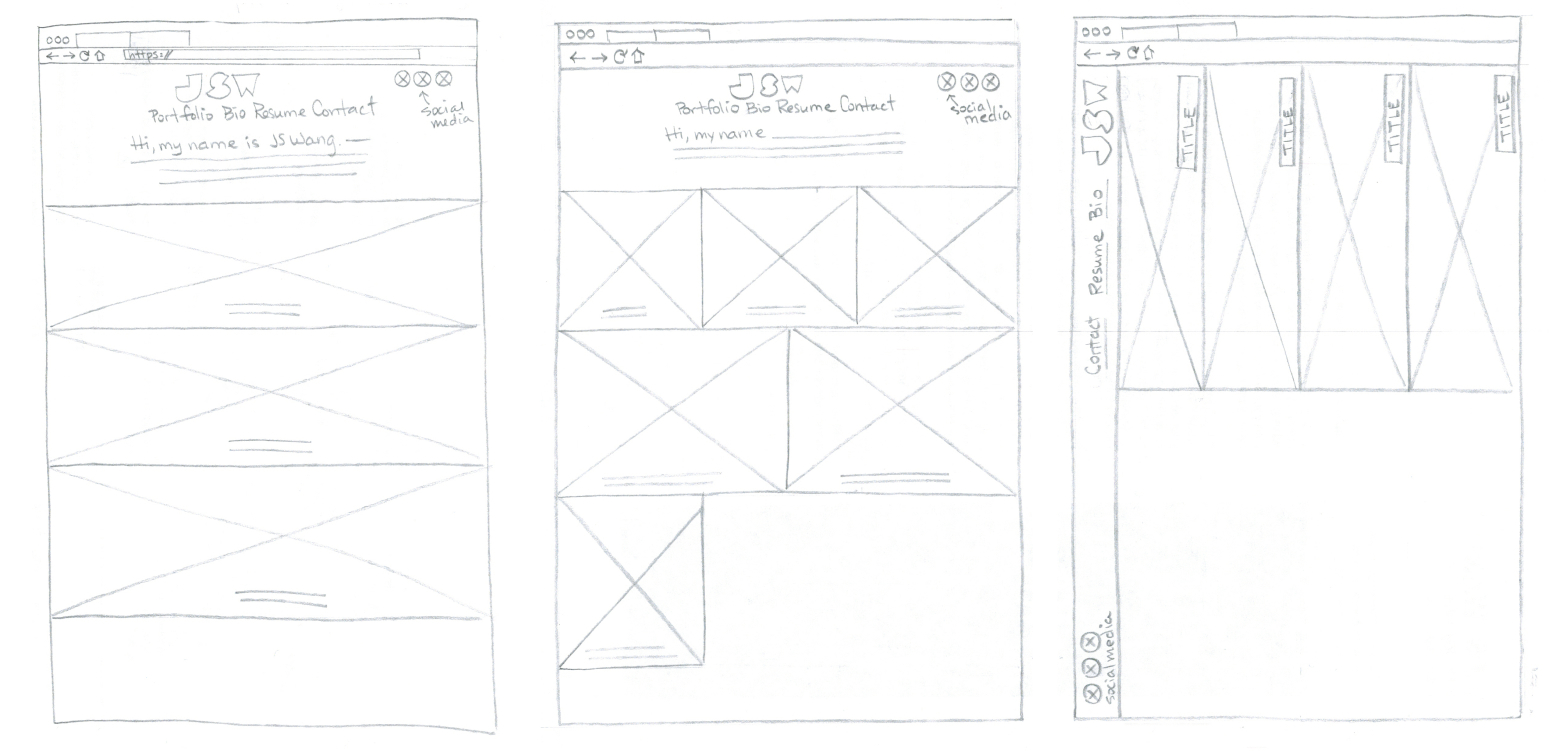 https://
JSW
Portfolio Bio Resume Contact
social
media
Hi, my name is JS Wang.
JSW
Portfolio Bio Resume Contact
social
media
Hi, my name
JSW
Bio
Resume
Contact
social media
TITLE
TITLE
TITLE
TITLE